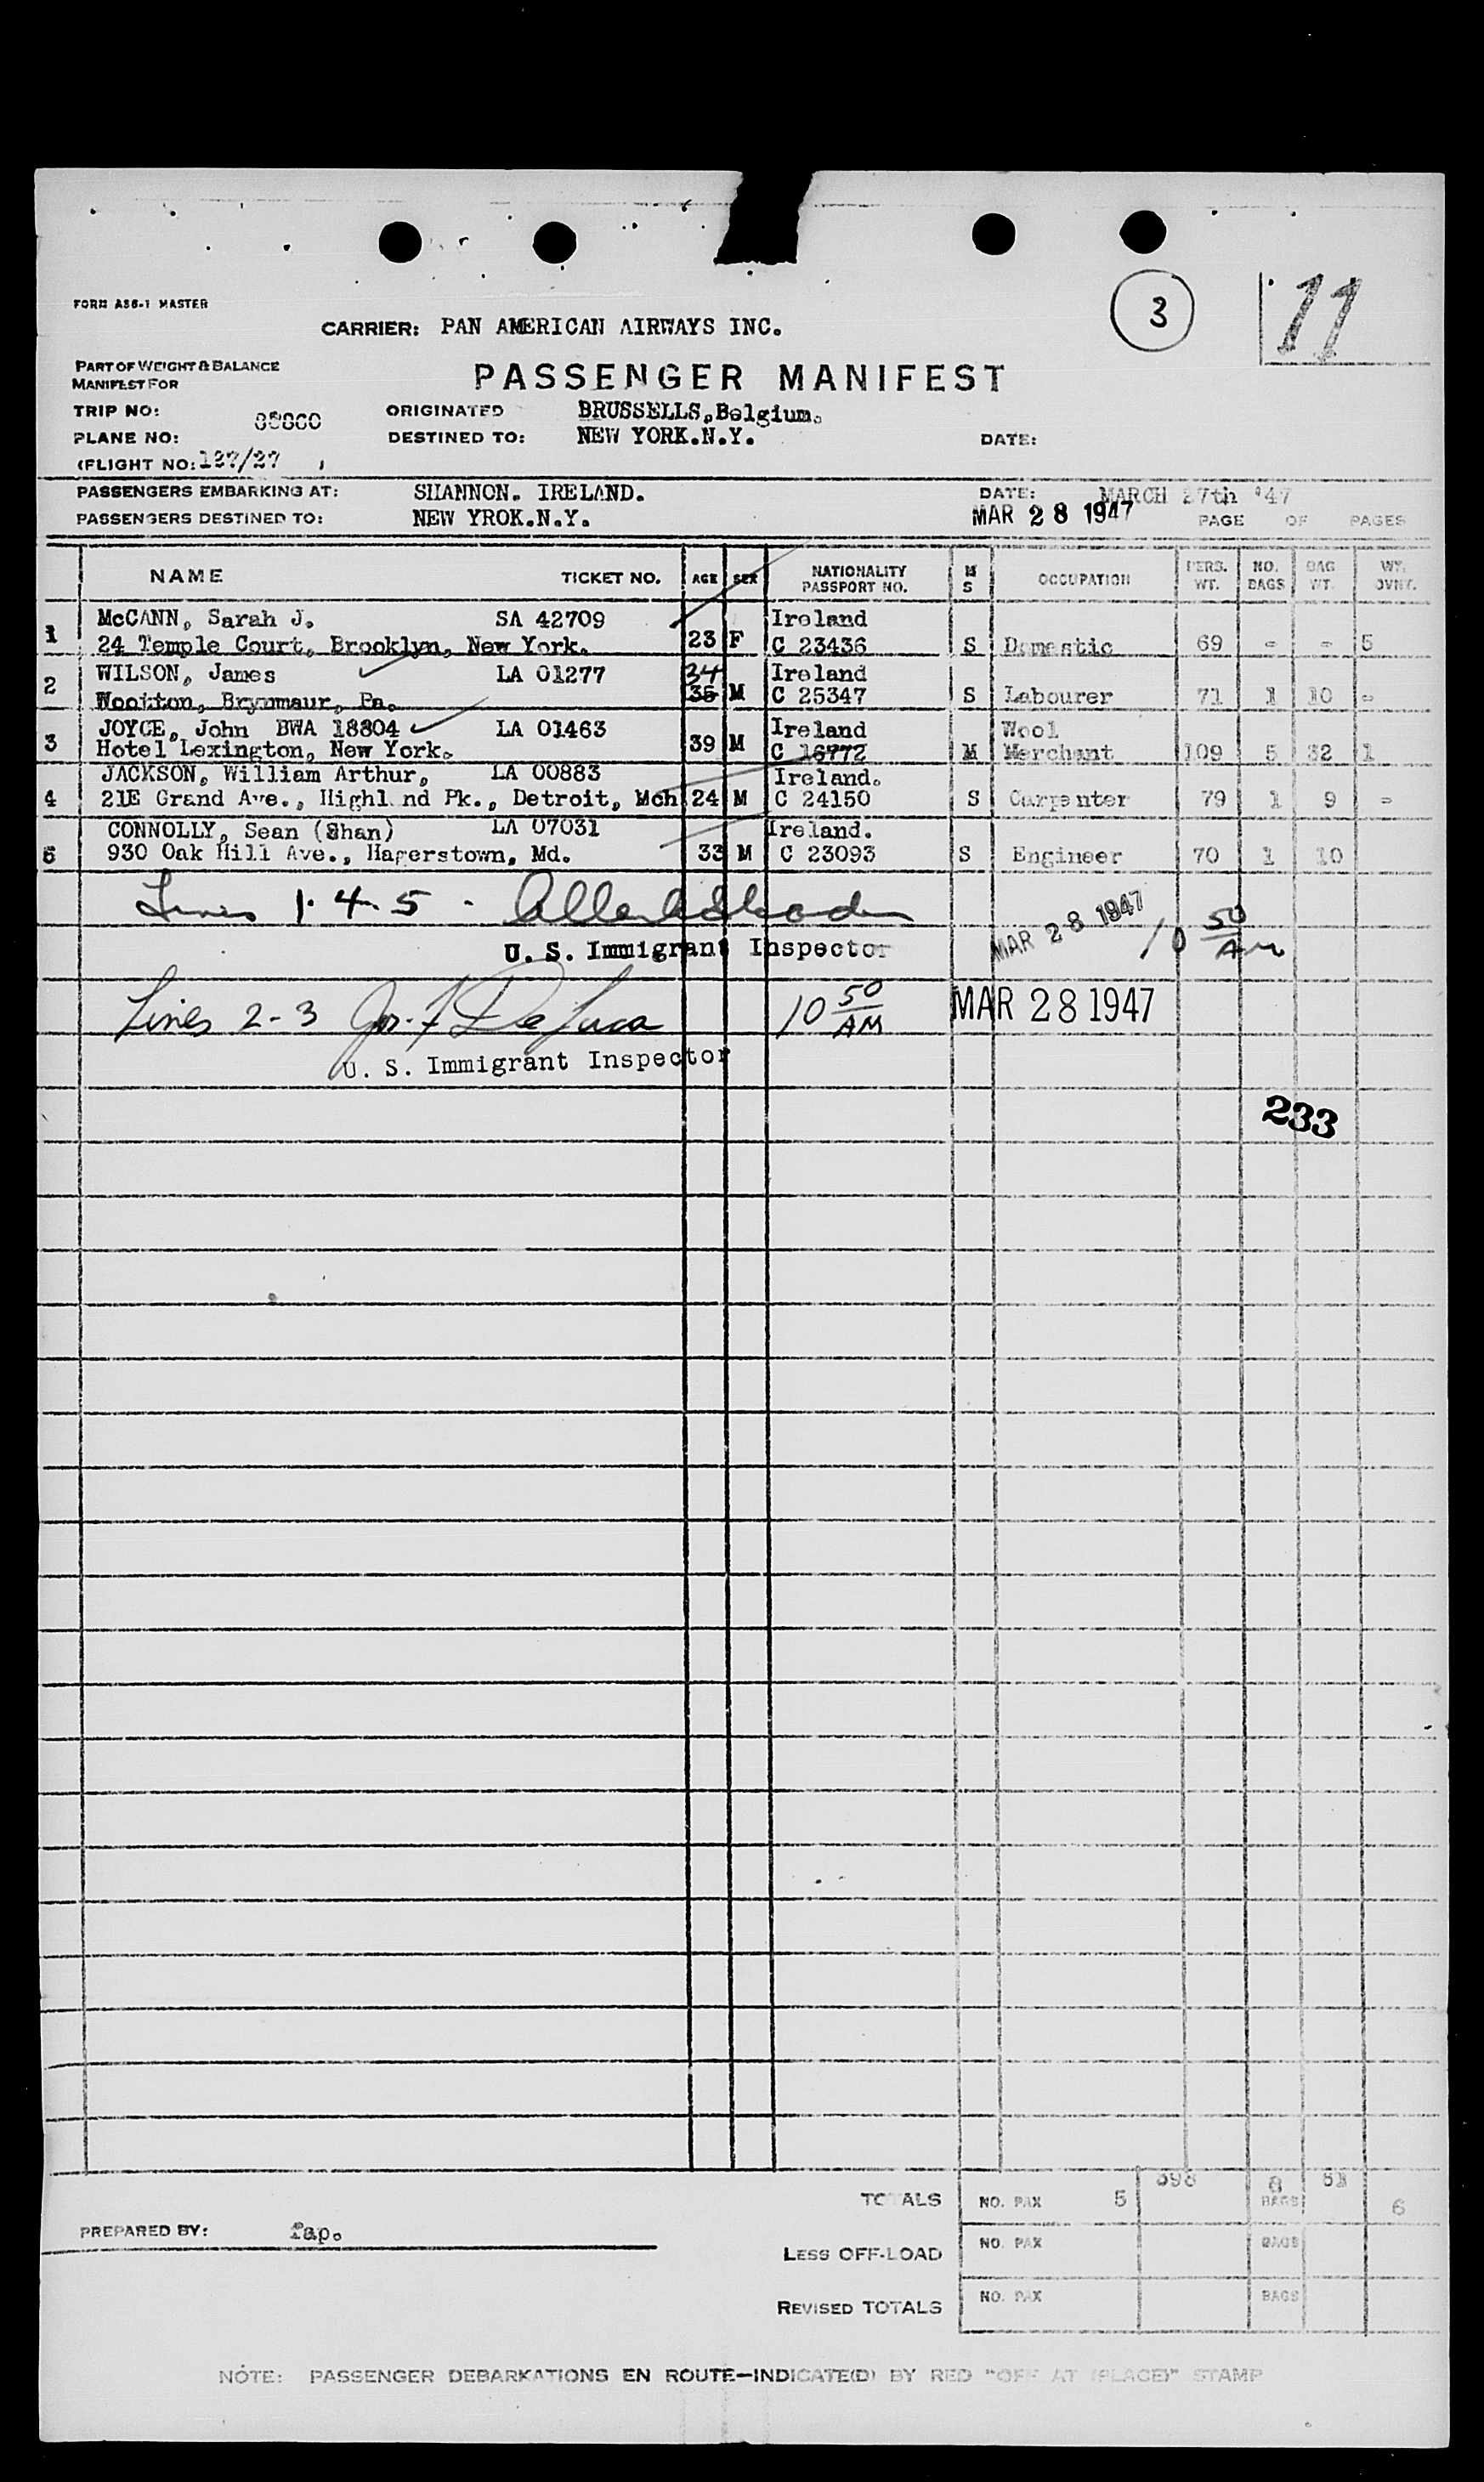 3
11
FORM AS6-1 MASTER
CARRIER: PAN AMERICAN AIRWAYS INC.
PART OF WEIGHT & BALANCE
MANIFEST FOR
PASSENGER MANIFEST
TRIP NO:
ORIGINATED BRUSSELLS,Belgium.
PLANE NO: DESTINED TO: NEW YORK.N.Y. DATE:
(FLIGHT NO: 127/27 )
PASSENGERS EMBARKING AT: SHANNON. IRELAND. DATE: MARCH 27th '47
PASSENGERS DESTINED TO: NEW YROK.N.Y. MAR 28 1947 PAGE OF PAGES
NAME TICKET NO. AGE SEX NATIONALITY PASSPORT NO. M S OCCUPATION PERS. WT. NO. BAGS BAG WT. WT. OVNT.
McCANN, Sarah J. SA 42709 Ireland
1 24 Temple Court, Brooklyn, New York. 23 F C 23436 S Domestic 69 - - 5
WILSON, James LA 01277 34 Ireland
2 Brynmaur, Pa. 35 M C 25347 S Labourer 71 1 10 -
JOYCE, John BWA 18804 LA 01463 Ireland Wool
3 Hotel Lexington, New York. 39 M C 16772 M Merchant 109 5 32 1
JACKSON, William Arthur, LA 00883 Ireland.
4 21E Grand Ave., Highl nd Pk., Detroit, Mch 24 M C 24150 S Carpenter 79 1 9 -
CONNOLLY, Sean (Shan) LA 07031 Ireland.
5 930 Oak Hill Ave., Hagerstown, Md. 33 M C 23093 S Engineer 70 1 10
Lines 1.4.5. MAR 28 1947 10 50 AM
U. S. Immigrant Inspector
Lines 2-3 Jos. F. De Luca 10 50 AM MAR 28 1947
U. S. Immigrant Inspector
233
TOTALS NO. PAX 5 398 8 BAGS 61 6
PREPARED BY: fap.
LESS OFF-LOAD NO. PAX BAGS
REVISED TOTALS NO. PAX BAGS
NOTE: PASSENGER DEBARKATIONS EN ROUTE—INDICATE(D) BY RED "OFF AT (PLACE)" STAMP